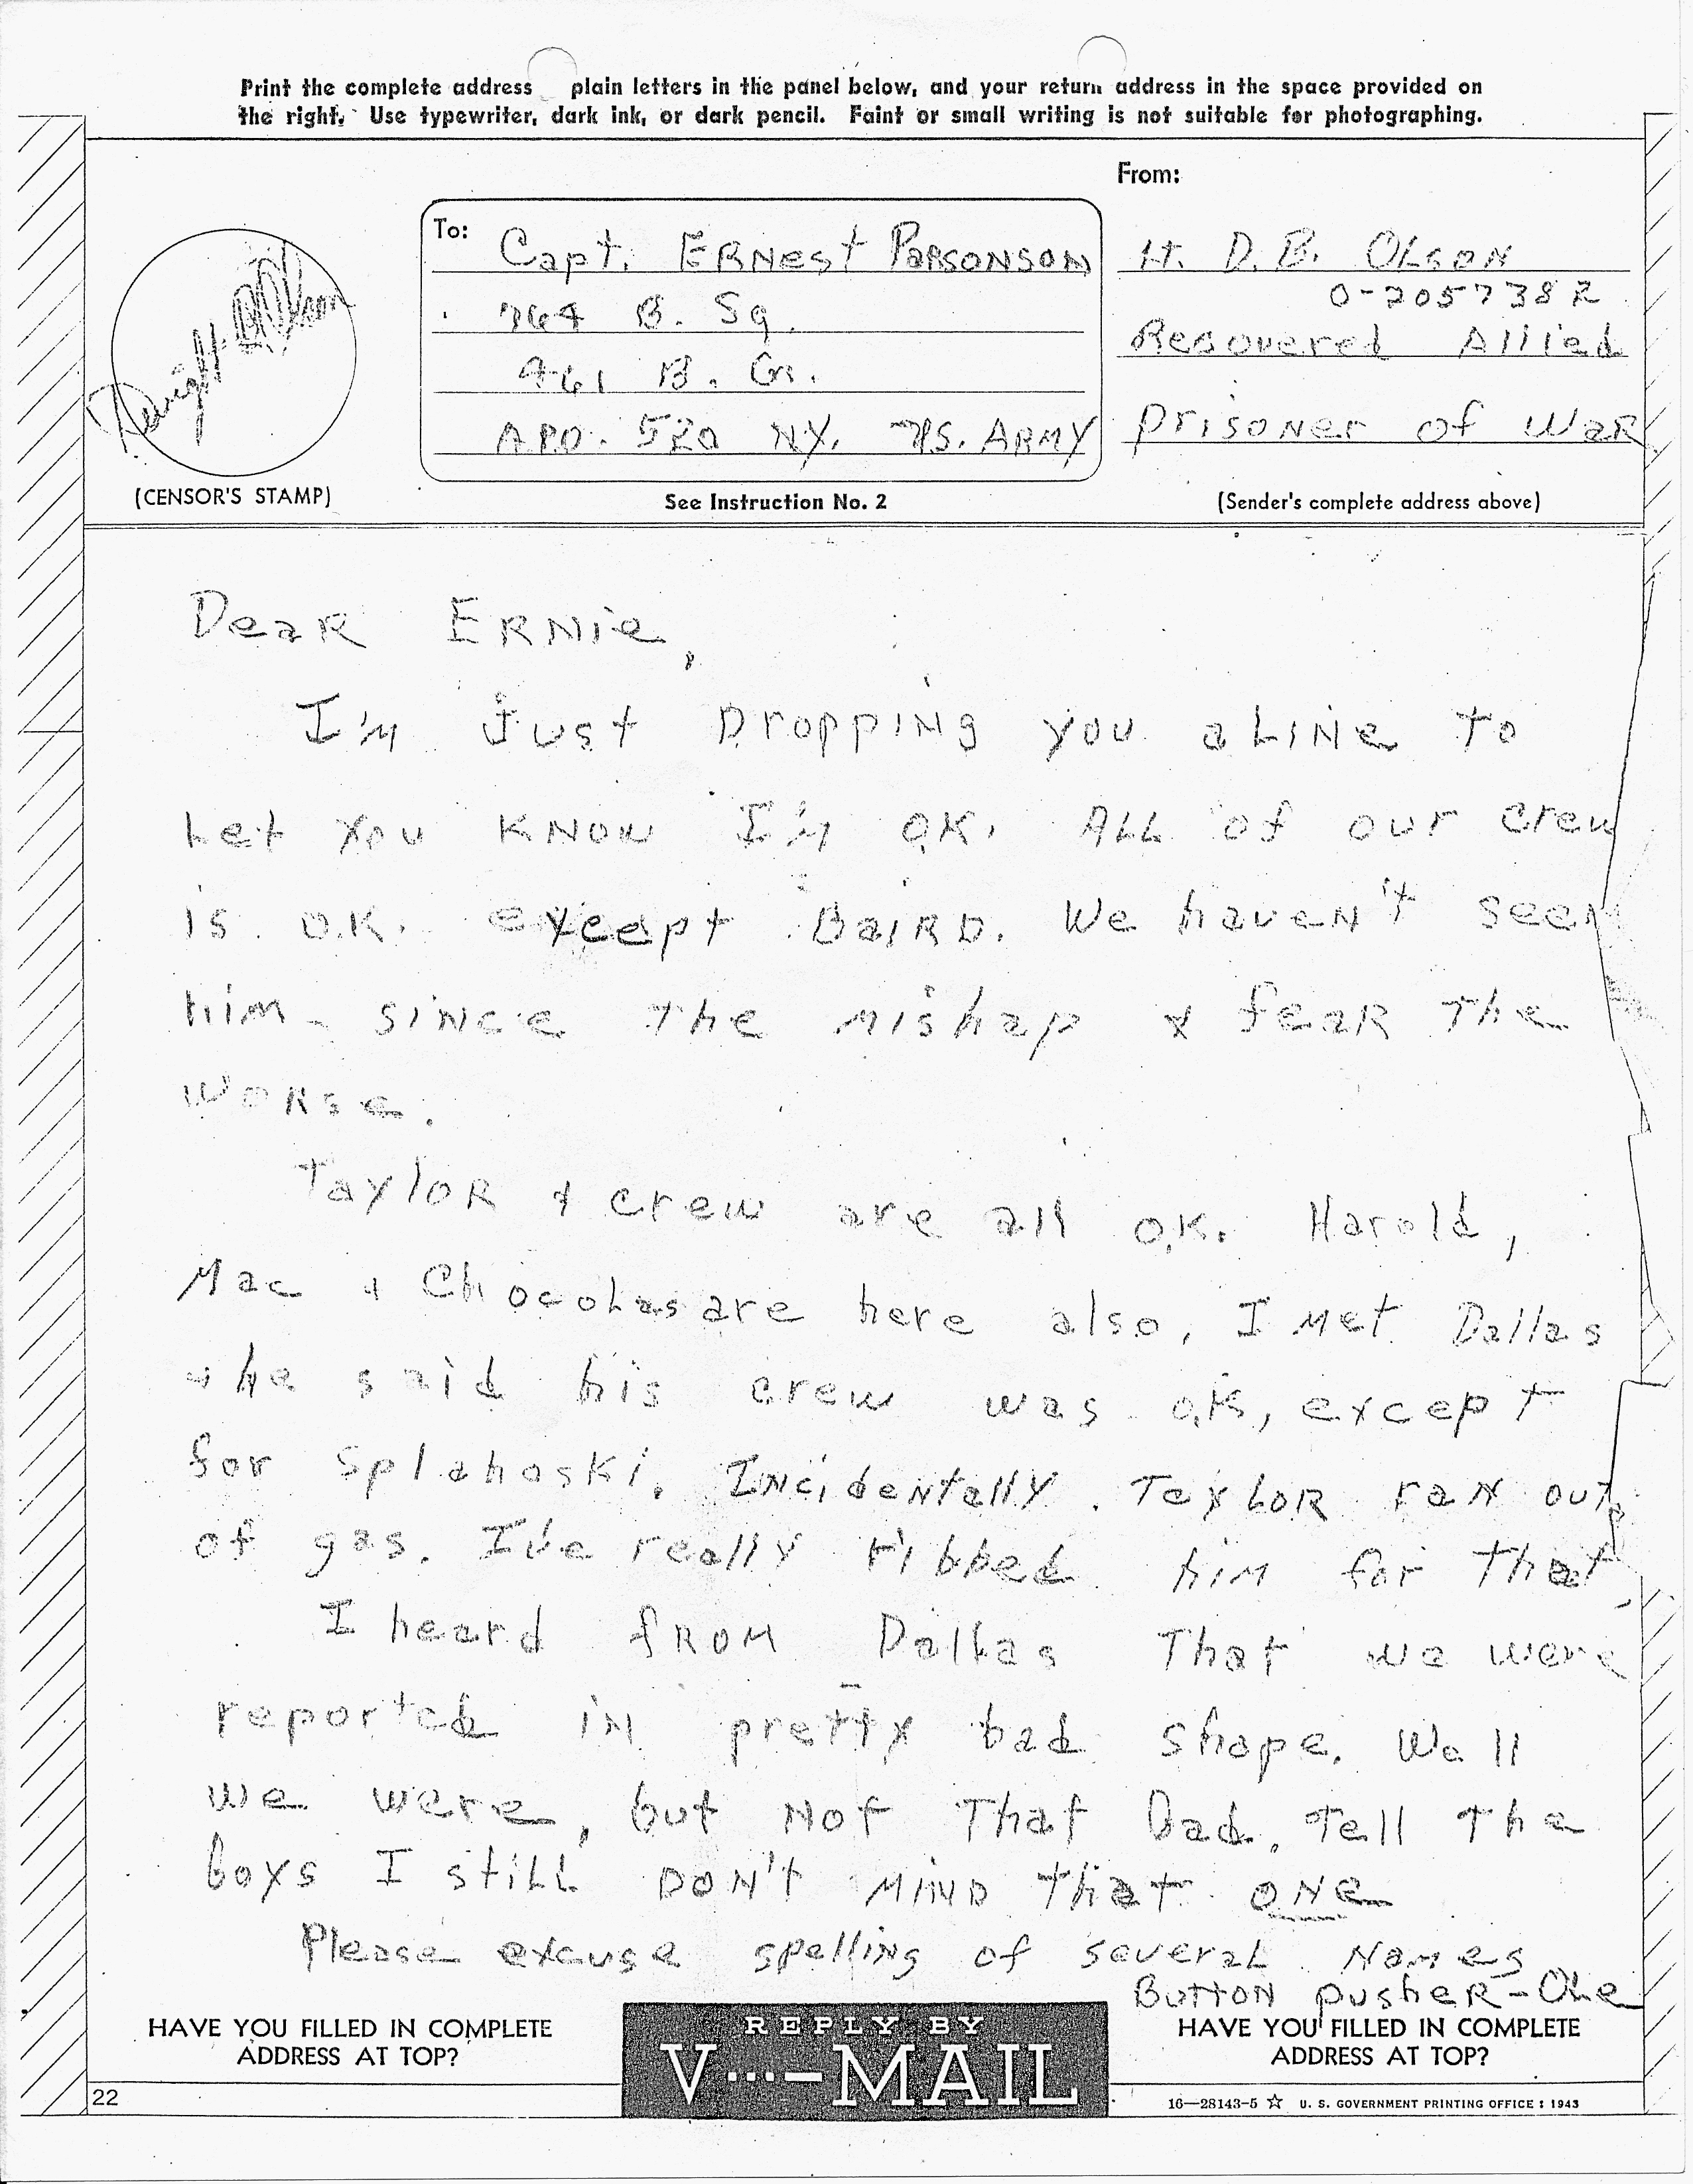 Print the complete address plain letters in the panel below, and your return address in the space provided on
the right. Use typewriter, dark ink, or dark pencil. Faint or small writing is not suitable for photographing.
From:
To: Capt. ERNEST PARSONSON
764 B. Sq.
461 B. Gr.
A.P.O. 520 N.Y. U.S. ARMY
Lt. D. B. OLSON
0-2057382
Recovered Allied
prisoner of WAR
Dwight B Olson
(CENSOR'S STAMP)
See Instruction No. 2
(Sender's complete address above)
Dear ERNie,
I'm Just Dropping you a Line to
Let you KNow I'm O.K. ALL of our crew
is O.K. except BaiRD. We haven't seen
him since the mishap & fear The
worse.
Taylor & crew are all O.K. Harold,
Mac & Chocolas are here also, I met Dallas
& he said his crew was O.K, except
for Splahoski. Incidentally. Taylor ran out
of gas. I've really ribbed him for that,
I heard from Dallas That we were
reported in pretty bad shape. Well
we were, but Not That Bad, Tell The
boys I still DON'T MIND that ONe
Please excuse spelling of several Names
Button pusher-Ole
HAVE YOU FILLED IN COMPLETE
ADDRESS AT TOP?
REPLY BY
V···—MAIL
HAVE YOU FILLED IN COMPLETE
ADDRESS AT TOP?
22
16—28143-5 ☆ U. S. GOVERNMENT PRINTING OFFICE : 1943